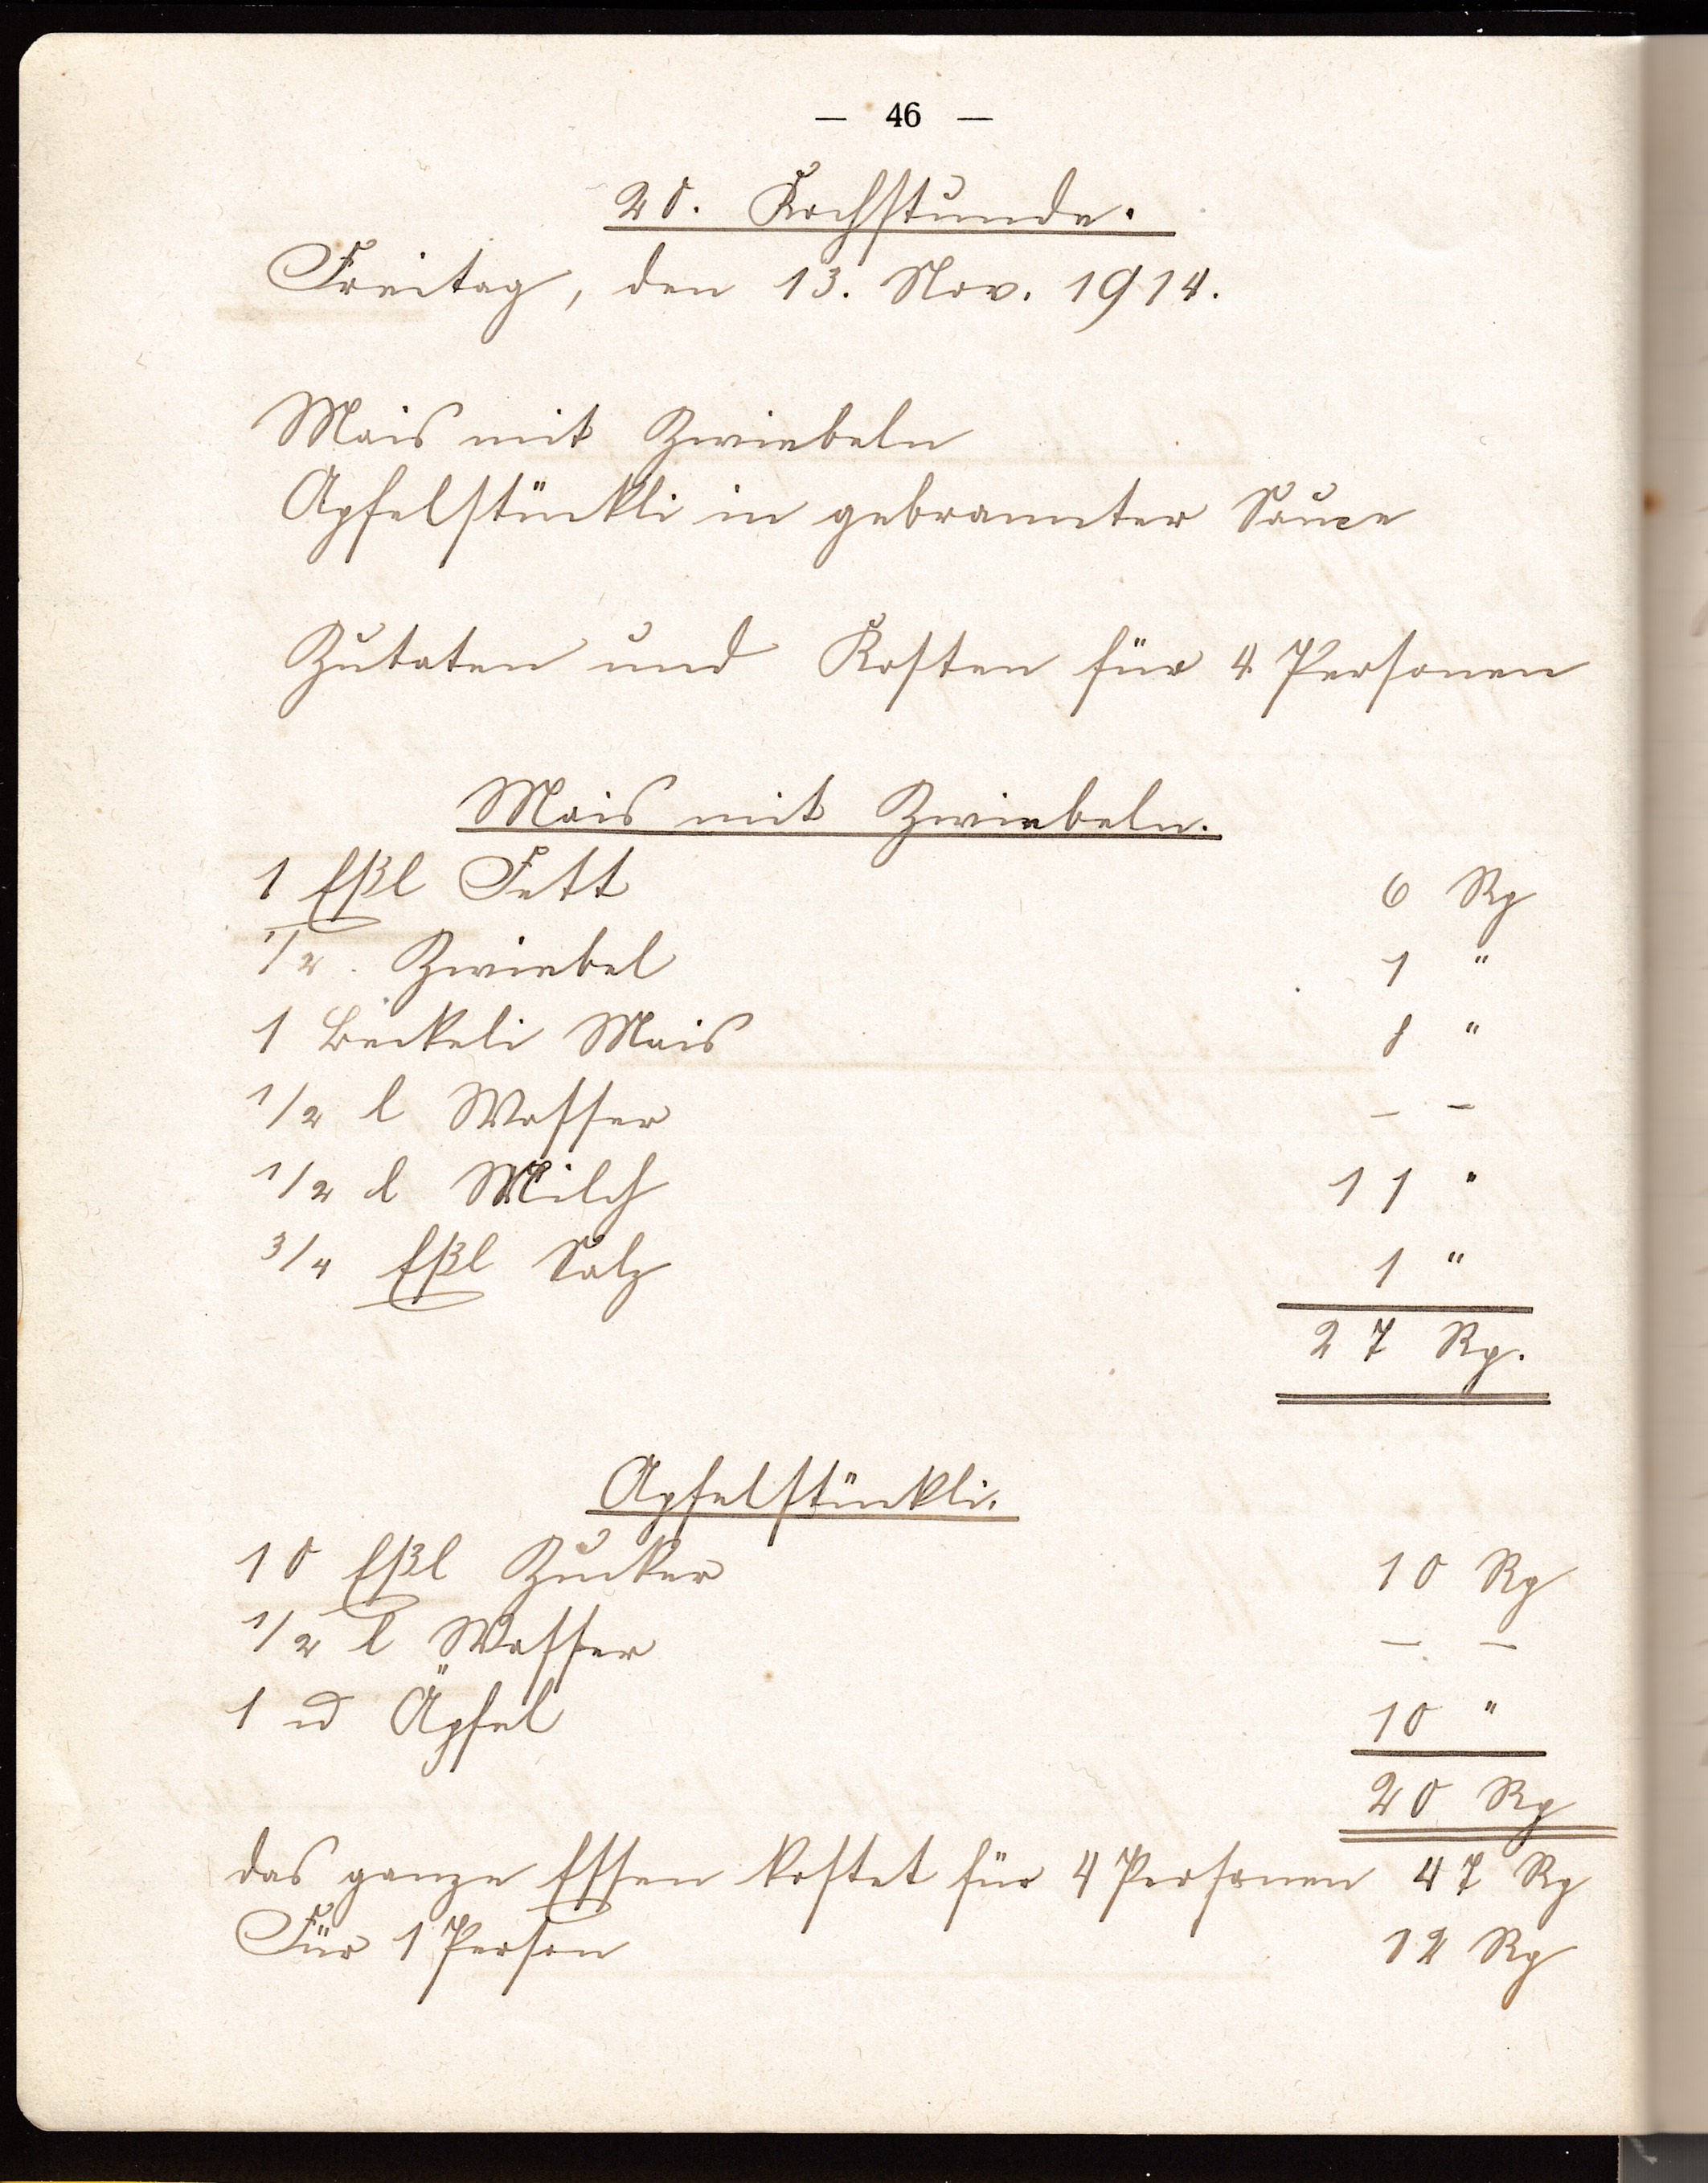 — 46 —
20. Kochstunde.
Freitag, den 13. Nov. 1914.
Mais mit Zwiebeln
Apfelstückli in gebrannter Sauce
Zutaten und Kosten für 4 Personen
Mais mit Zwiebeln.
1 Eßl Fett 6 Rp
1/2 Zwiebel 1 "
1 Beckeli Mais 8 "
1/2 l Wasser — —
1/2 l Milch 11 "
3/4 Eßl Salz 1 "
27 Rp.
Apfelstückli.
10 Eßl Zucker 10 Rp
1/2 l Wasser — —
1 Äpfel 10 "
20 Rp
das ganze Essen kostet für 4 Personen 47 Rp
Für 1 Person 12 Rp